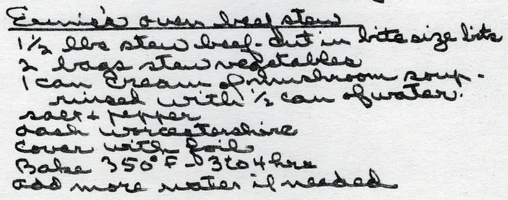 Ernie's oven beef stew
1 1/2 lbs stew beef - cut in bite size bits
2 bags stew vegetables
1 can Cream of Mushroom soup -
rinsed with 1/2 can of water.
salt + pepper
dash worcestershire
cover with foil
Bake 350° F - 3 to 4 hrs
add more water if needed